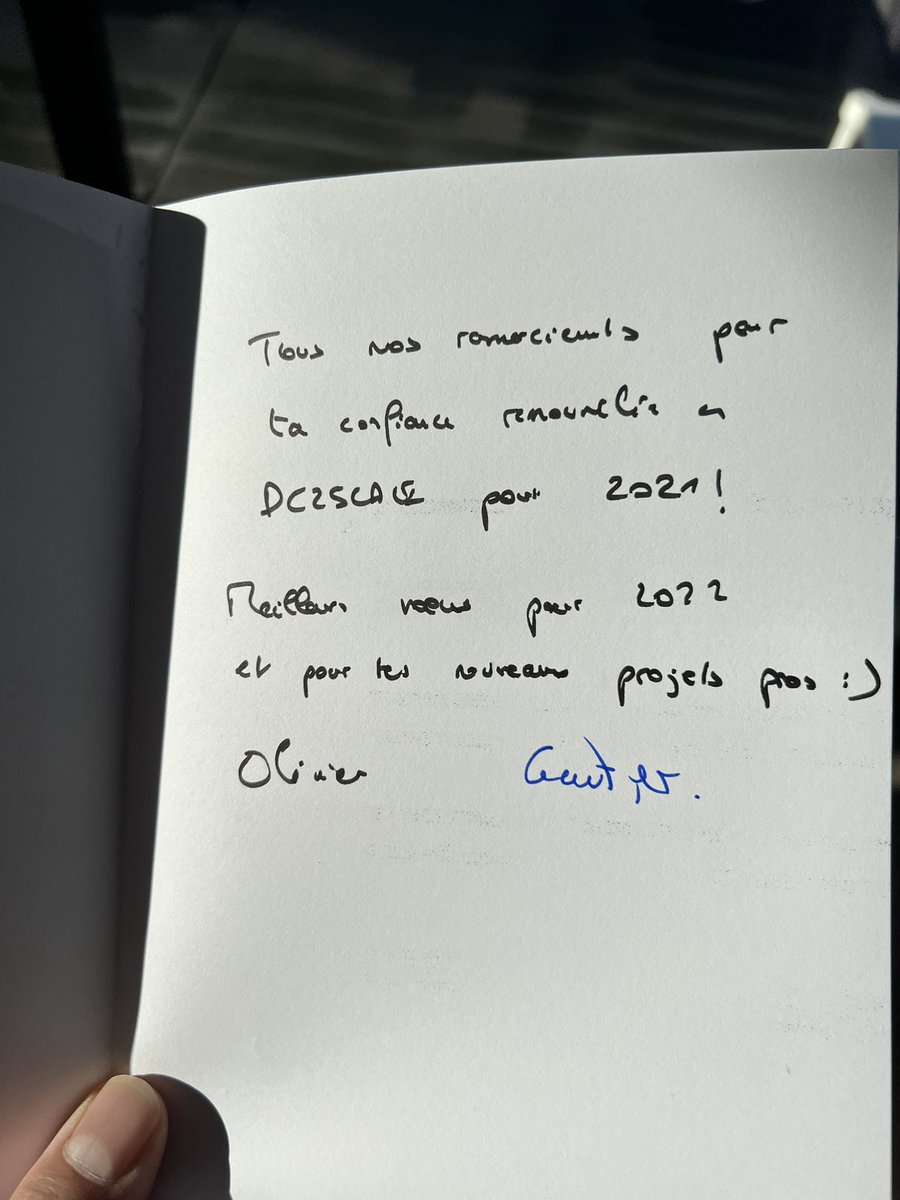 Tous nos remerciements pour
ta confiance renouvelée en
DC2SCALE pour 2021 !
Meilleurs voeux pour 2022
et pour tes nouveaux projets pros :)
Olivier